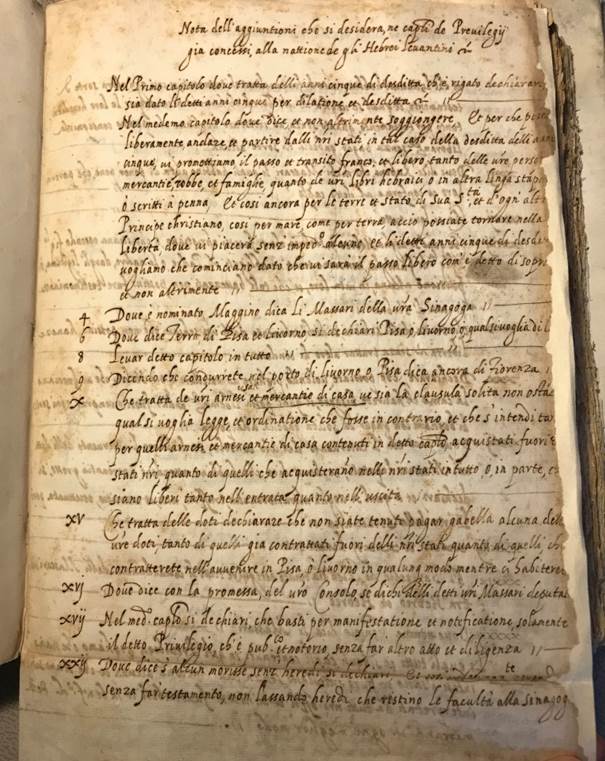 Nota dell'aggiuntioni che si desidera, ne capli de Previlegij
gia concessi, alla nattione de gli Hebrei levantini
Nel Primo capitolo dove tratta delli anni cinque di desditta, ch'è rigato dechiarar
sia dato li detti anni cinque per dilatione et desditta
Nel medemo capitolo dove dice, et non altrimente soggiongere. Et per che
liberamente andare, et partire dalli nri stati in tal caso della desditta delli
cinque, vi promettiamo il passo et transito franco, et libero, tanto delle vre
mercantie, robbe, et famiglie, quanto de vri libri hebraici o in altra lingua
o scritti à penna. Et cosi ancora per le terre et stato di Sua S.tà et d'ogn'
Principe christiano, cosi per mare, come per terra, acciò possiate tornare nella
libertà dove vi piacerà senz' imped.o alcuno, et li detti anni cinque di
vogliano che cominciano dato che vi sarà il passo libero com' è detto di
et non altrimente
4 Dove è nominato Maggino dica li Massari della vra Sinagoga
6 Dove dice Terra di Pisa et livorno, si dechiari Pisa, o livorno, o qual si voglia di
8 levar detto capitolo in tutto
9 Dicendo che condurrete nel porto di livorno o Pisa dica ancora di Fiorenza
X Che tratta de vri arnesi et mercantie di casa, ve sia la clausula solita non
qual si voglia legge, et ordinatione che fosse in contrario, et che s'intendi
per quelli arnesi et mercantie di casa contenuti in detto caplo acquistati fuori
stati nri quanto di quelli che acquisterano nelli nri stati in tutto o, in parte,
siano liberi tanto nell'entrata quanto nell'uscita
XV Che tratta delle doti dechiarare che non siate tenuti pagar gabella alcuna
vre doti, tanto di quelli gia contrattati fuori delli nri stati quanto di quelli,
contratterete nell'avvenire in Pisa, o livorno in qualunq modo mentre
XVJ Dove dice con la promessa, del vro Consolo, se dichi delli detti vri Massari
XVIJ Nel med.o caplo si dechiari che basti per manifestatione et notificatione, solamente
il detto Privilegio, ch'è pub.co et notorio, senza far altro atto et diligenza
XXIJ Dove dice s'alcun morisse senz' heredi si dechiari
senza far testamento, non lassando heredi che restino le facultà alla